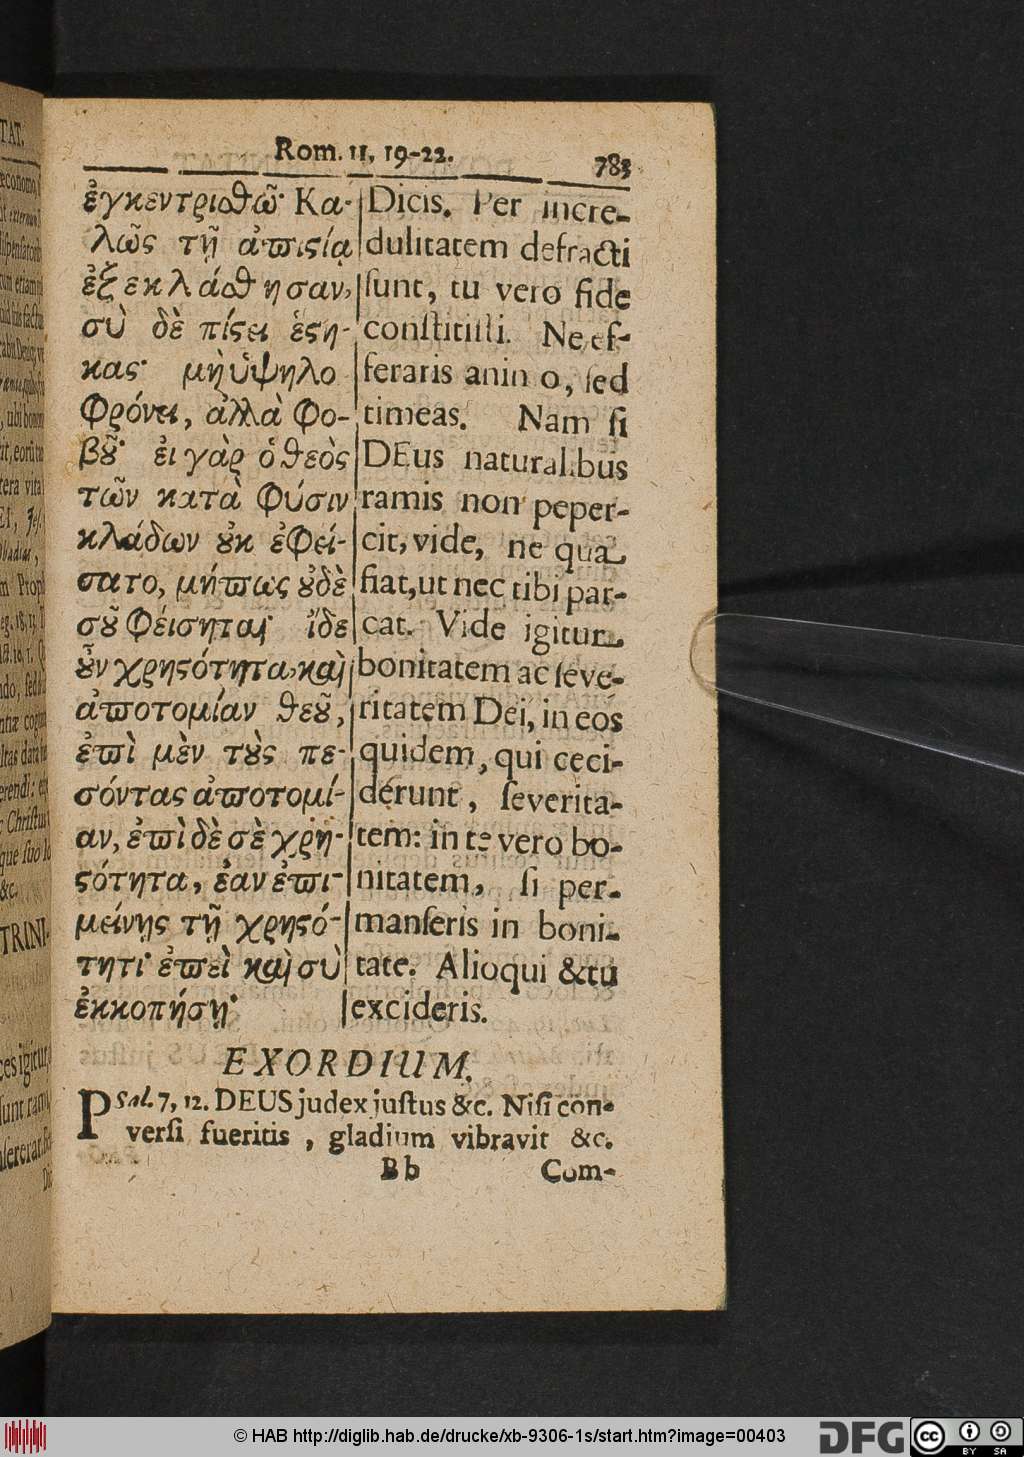 Rom. 11, 19-22.
783
ἐγκεντρισθῶ· Κα-
λῶς τῇ ἀπιστίᾳ
ἐξεκλάσθησαν,
σὺ δὲ πίστει ἑστη-
κας· μὴ ὑψηλο
φρόνει, ἀλλὰ φο-
βȣ͂· ἐι γὰρ ὁ θεὸς
τῶν κατὰ φύσιν
κλάδων ȣ̓κ ἐφεί-
σατο, μήπως ȣ̓δὲ
σȣ͂ φείσηται· ἴδε
ȣ̓͂ν χρηστότητα, καὶ
ἀποτομίαν θεȣ͂,
ἐπὶ μὲν τȣ̀ς πε-
σόντας ἀποτομί-
αν, ἐπὶ δὲ σὲ χρη-
στότητα, ἐαν ἐπι-
μείνῃς τῇ χρηστό-
τητι· ἐπεὶ καὶ σὺ
ἐκκοπήσῃ·
Dicis. Per incre-
dulitatem defracti
ſunt, tu vero fide
conſtitiſti. Ne ef-
feraris animo, ſed
timeas. Nam ſi
DEus naturalibus
ramis non peper-
cit, vide, ne qua
fiat, ut nec tibi par-
cat. Vide igitur
bonitatem ac ſeve-
ritatem Dei, in eos
quidem, qui ceci-
dérunt, ſeverita-
tem: in te vero bo-
nitatem, ſi per-
manſeris in boni-
tate. Alioqui & tu
excideris.
EXORDIUM.
PSal. 7, 12. DEUS judex juſtus &c. Niſi con-
verſi fueritis, gladium vibravit &c.
Bb Com-
© HAB http://diglib.hab.de/drucke/xb-9306-1s/start.htm?image=00403
DFG
cc BY SA